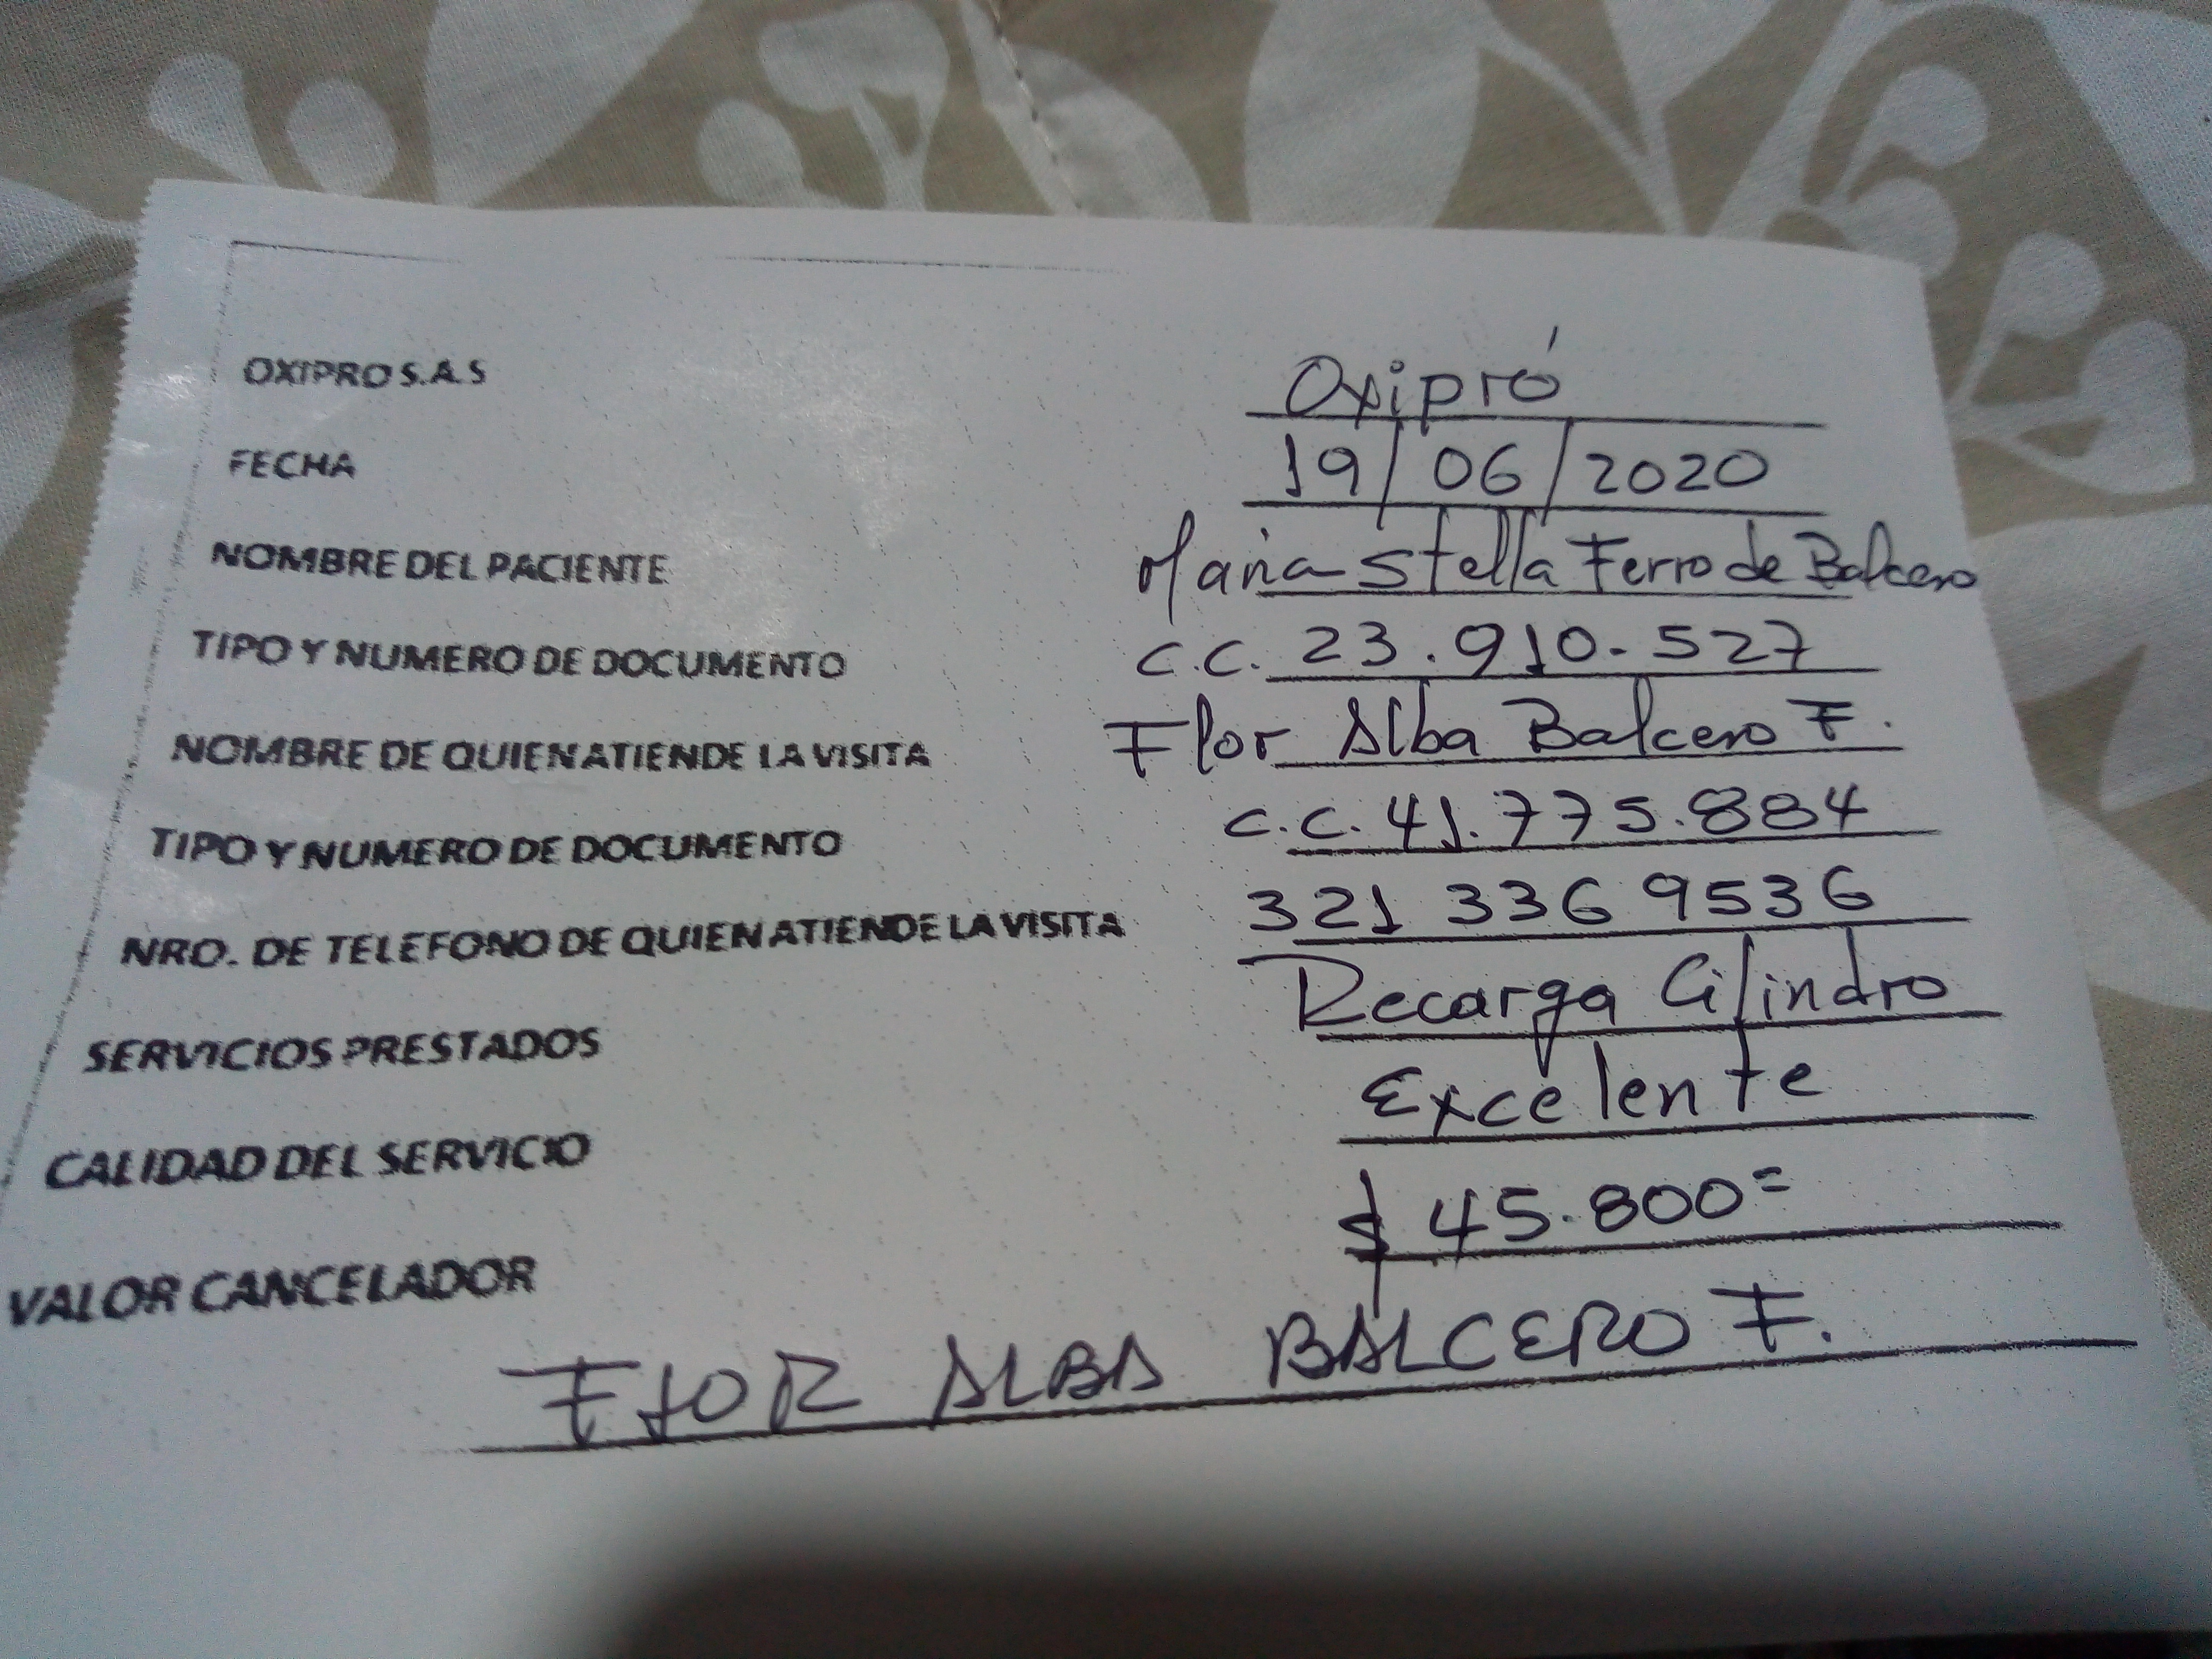 OXIPRO S.A.S Oxipró
FECHA 19/06/2020
NOMBRE DEL PACIENTE Maria Stella Ferro de Balcero
TIPO Y NUMERO DE DOCUMENTO C.C. 23.910.527
NOMBRE DE QUIEN ATIENDE LA VISITA Flor Alba Balcero F.
TIPO Y NUMERO DE DOCUMENTO C.C. 41.775.884
NRO. DE TELEFONO DE QUIEN ATIENDE LA VISITA 321 336 9536
SERVICIOS PRESTADOS Recarga Cilindro
CALIDAD DEL SERVICIO Excelente
VALOR CANCELADOR $ 45.800=
FlOR ALBA BALCERO F.